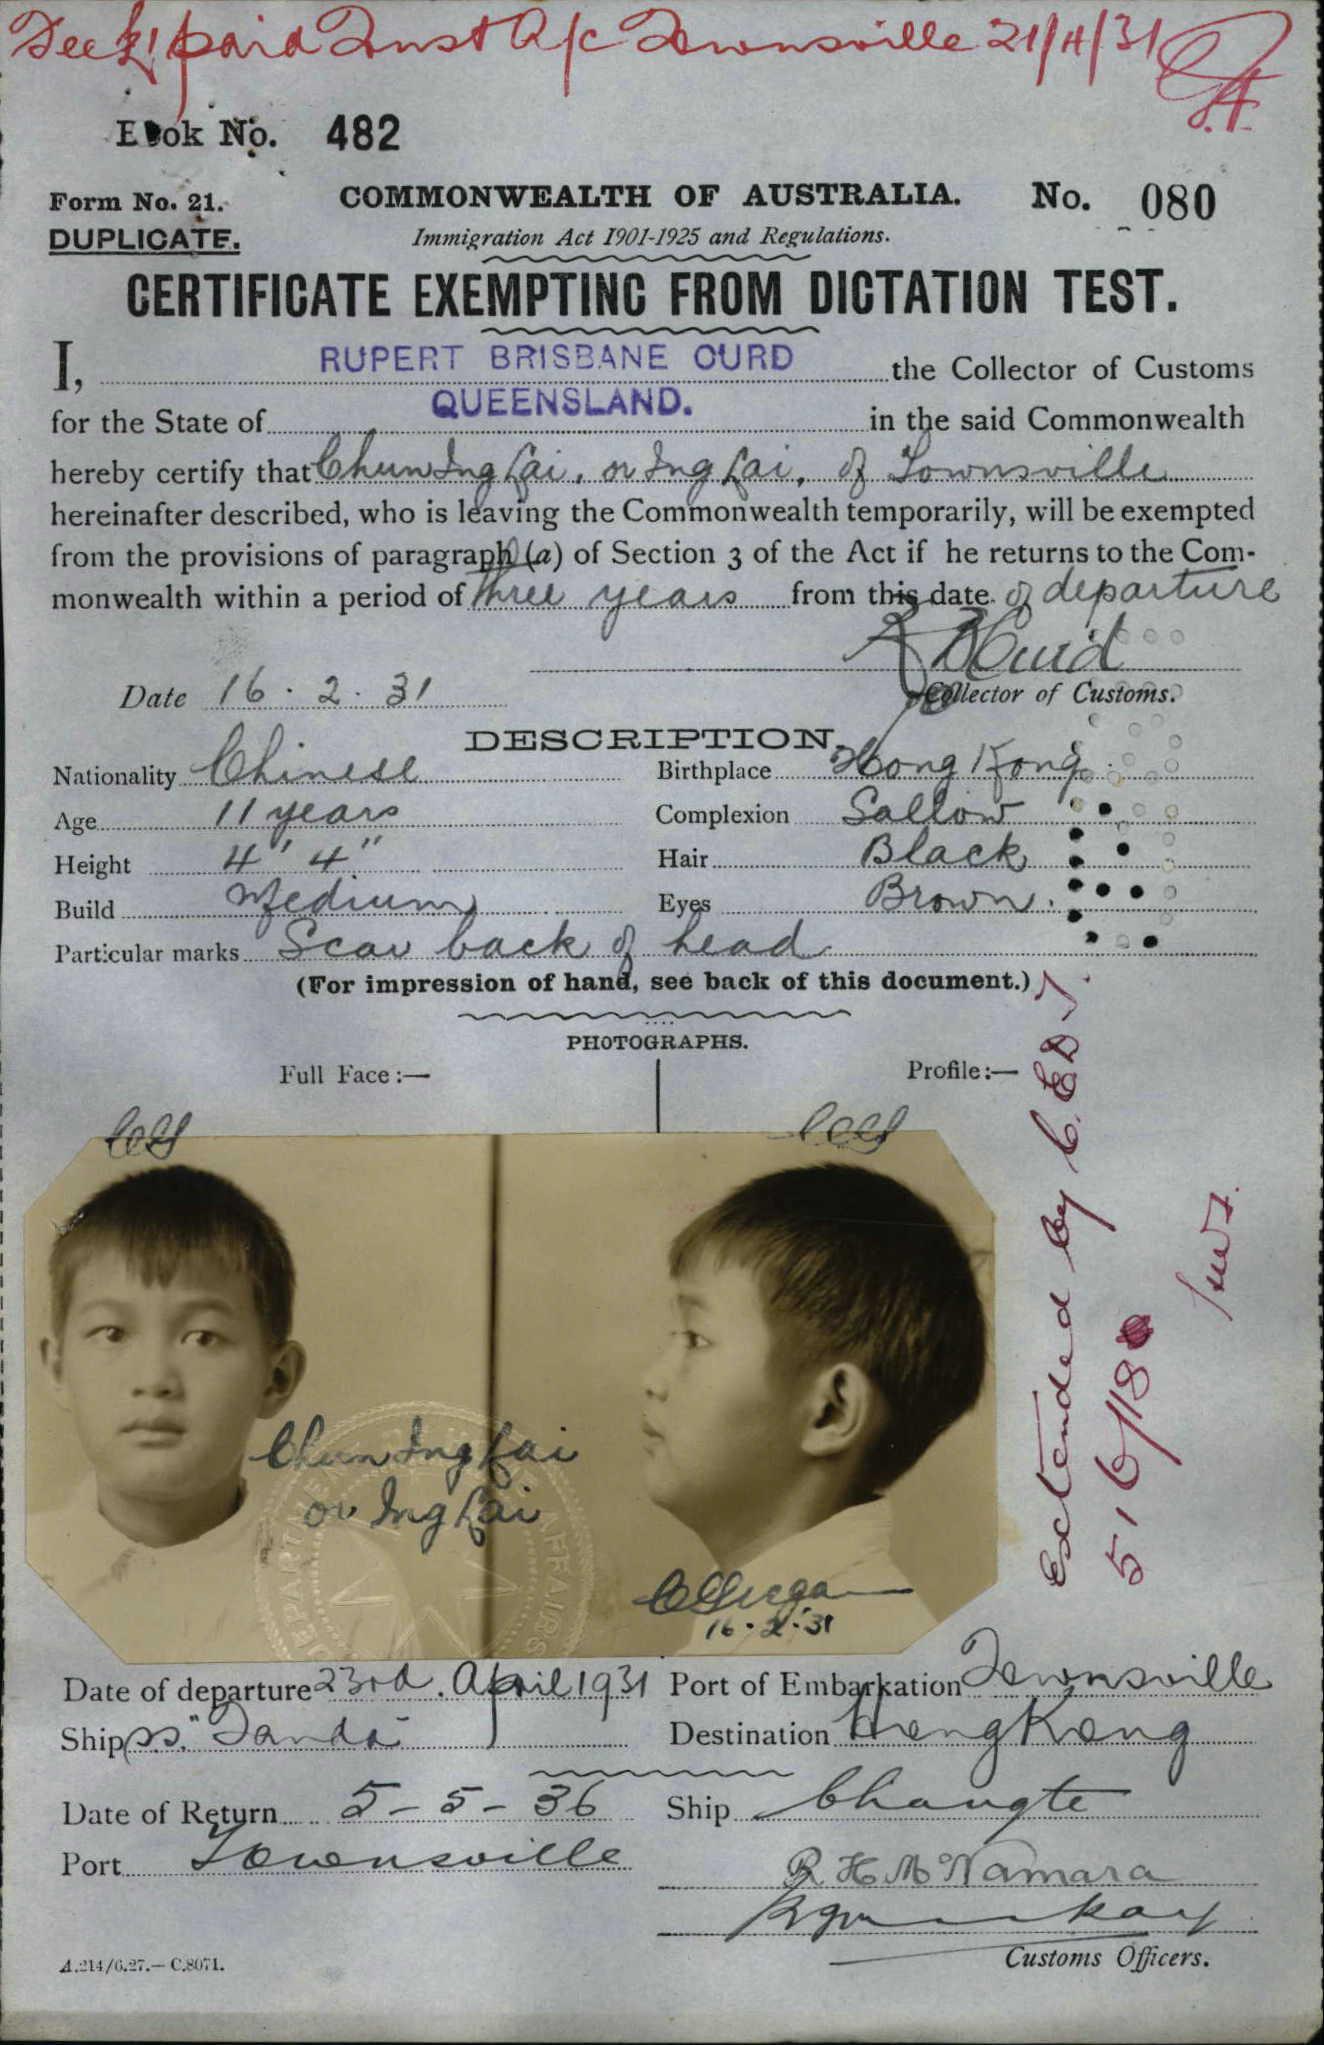 Fee £1 paid Trust A/c Townsville 21/4/31
Book No. 482
Form No. 21.
DUPLICATE.
COMMONWEALTH OF AUSTRALIA.
No. 080
Immigration Act 1901-1925 and Regulations.
CERTIFICATE EXEMPTING FROM DICTATION TEST.
I, RUPERT BRISBANE CURD the Collector of Customs
for the State of QUEENSLAND. in the said Commonwealth
hereby certify that Chun Ing Lai, or Ing Lai, of Townsville
hereinafter described, who is leaving the Commonwealth temporarily, will be exempted
from the provisions of paragraph (a) of Section 3 of the Act if he returns to the Com-
monwealth within a period of three years from this date of departure
R B Curd
Date 16.2.31
Collector of Customs.
DESCRIPTION.
Nationality Chinese Birthplace Hong Kong
Age 11 years Complexion Sallow
Height 4' 4" Hair Black
Build Medium Eyes Brown.
Particular marks Scar back of head
(For impression of hand, see back of this document.)
PHOTOGRAPHS.
Full Face:— Profile:—
Chun Ing Lai
or Ing Lai
16.2.31
DEPARTMENT AFFAIRS
Extended by C.E.D.T.
516/18
Date of departure 23rd. April 1931 Port of Embarkation Townsville
Ship s.s. "Tanda" Destination Hong Kong
Date of Return 5-5-36 Ship Changte
Port Townsville
R H McNamara
Customs Officers.
A.214/6.27.—C.8071.